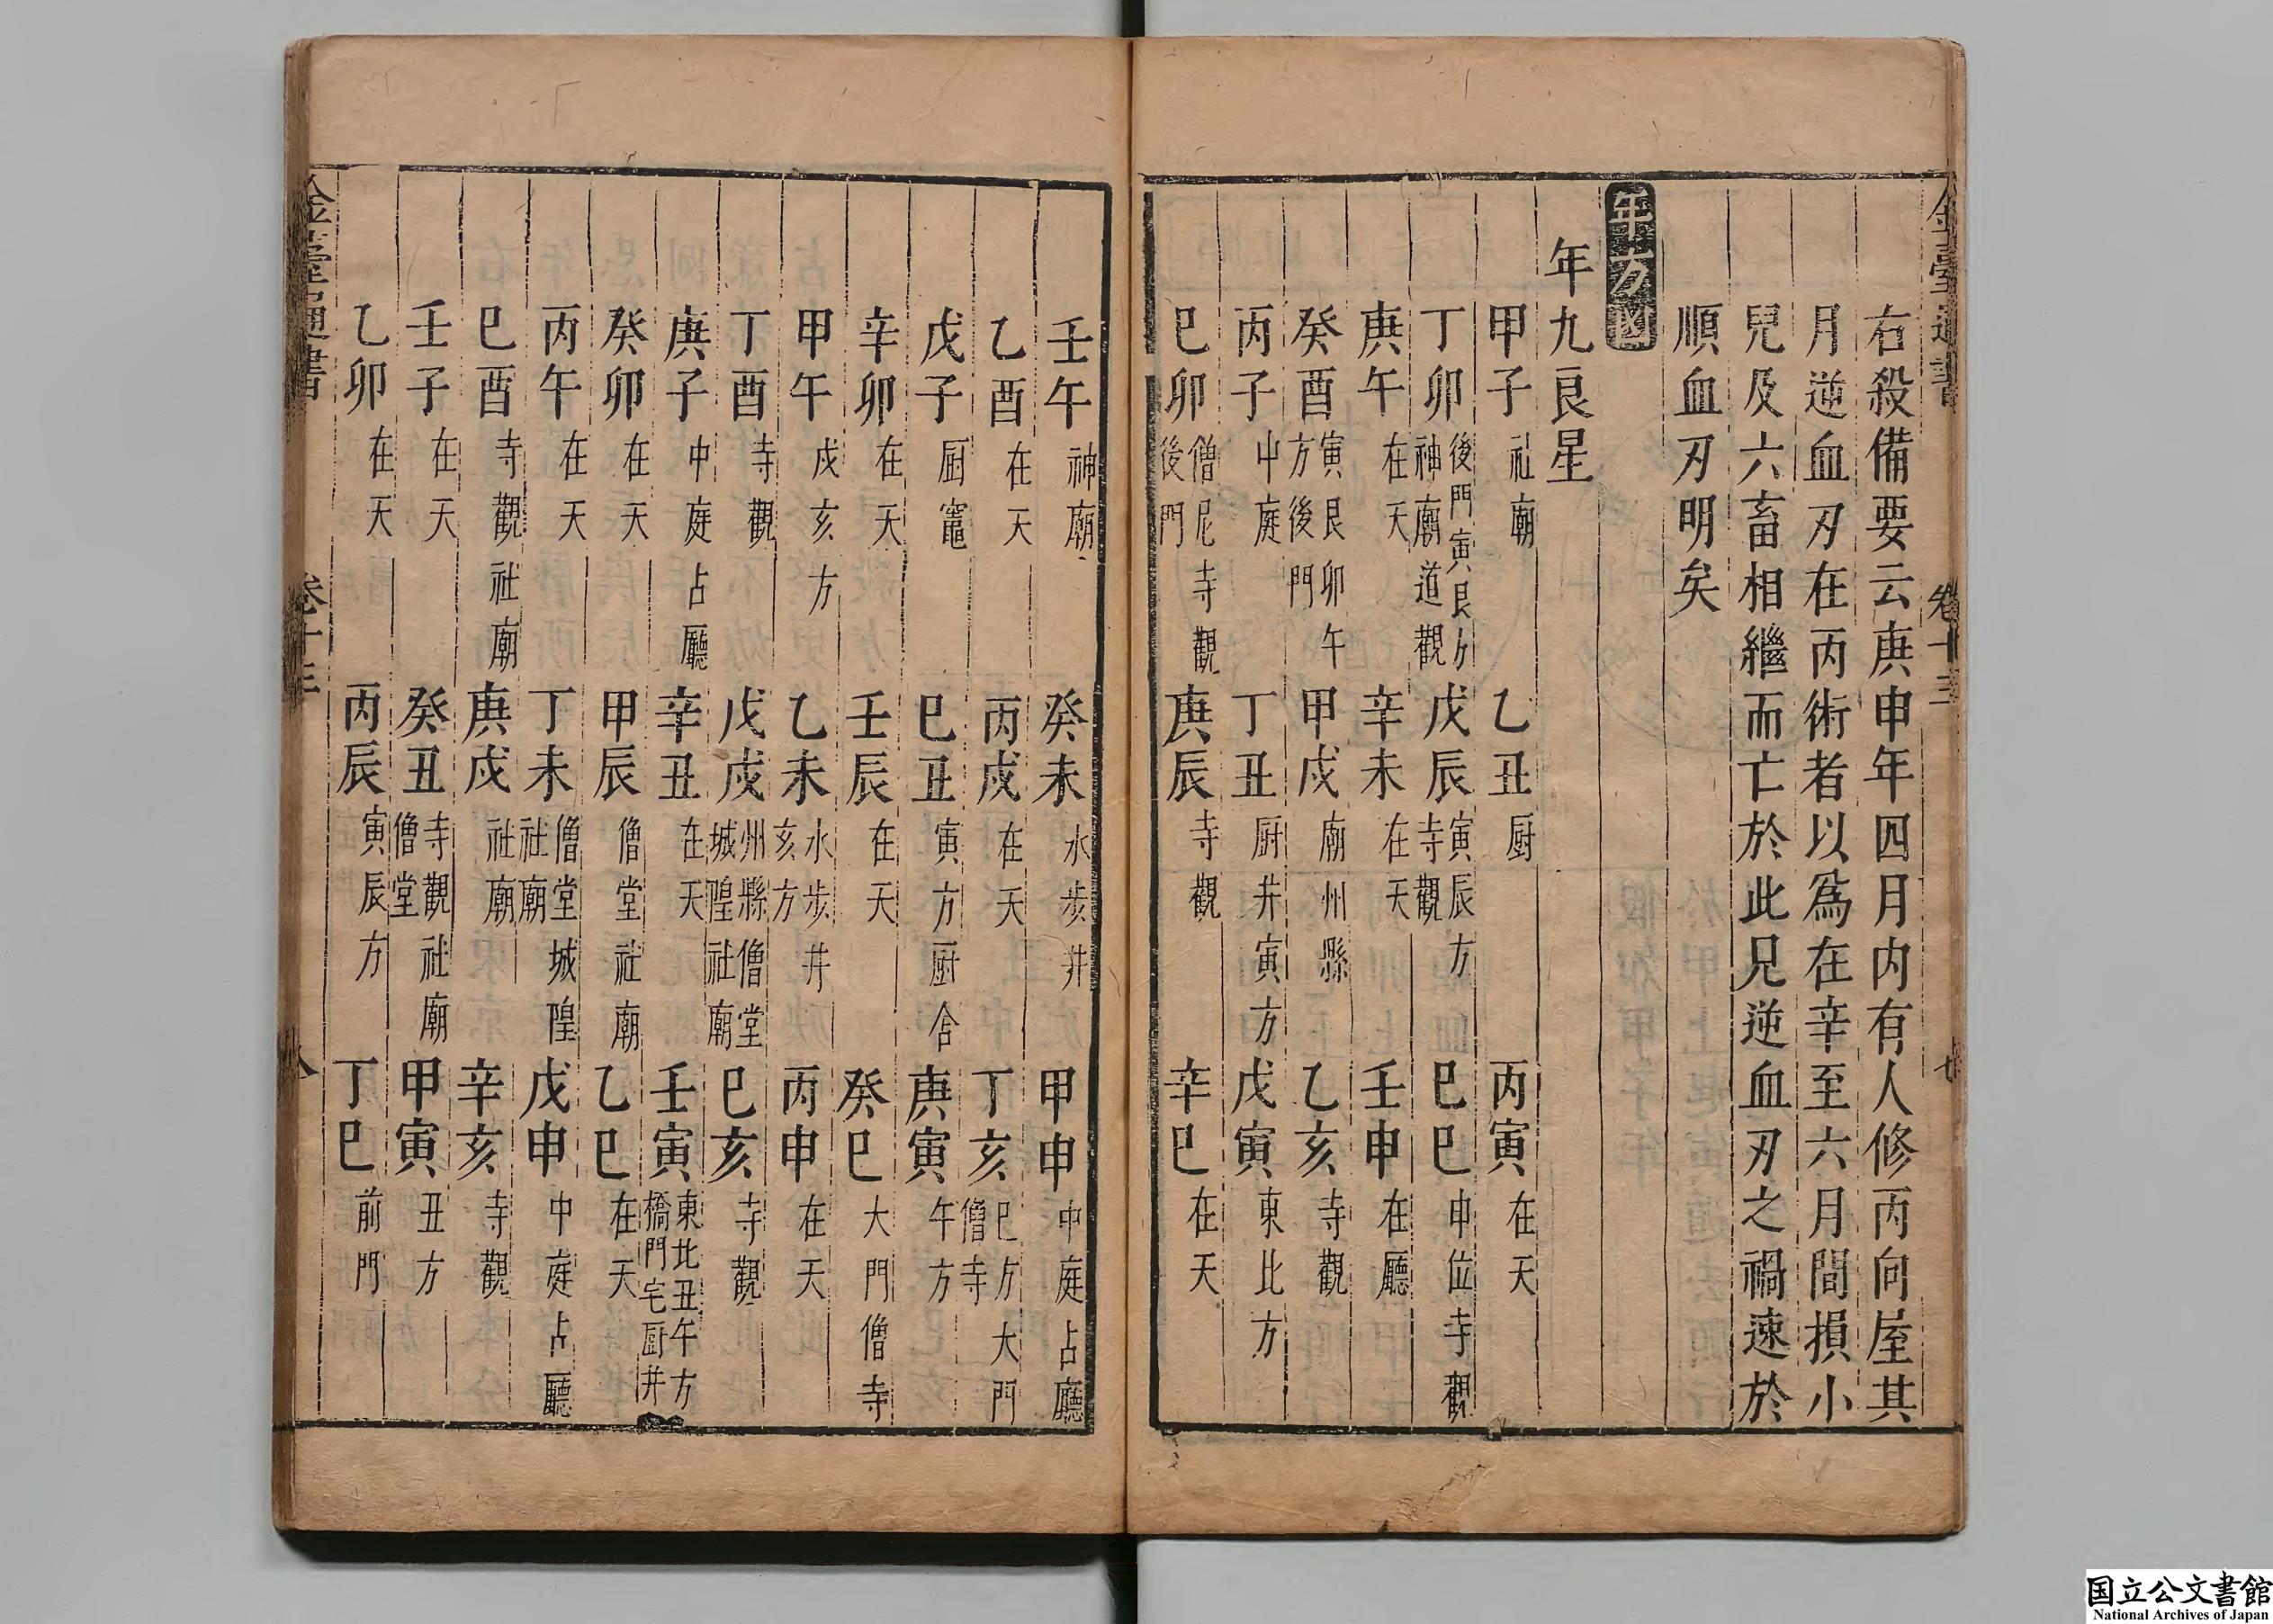 金臺通書 卷十三 七
右殺備要云庚申年四月内有人修丙向屋其
月逆血刃在丙術者以爲在辛至六月間損小
兒及六畜相繼而亡於此兄逆血刃之禍速於
順血刃明矣
年方凶
年九艮星
甲子社廟 乙丑厨 丙寅在天
丁卯後門寅艮方神廟道觀 戊辰寅辰方寺觀 巳巳申位寺觀
庚午在天 辛未在天 壬申在廳
癸酉寅艮卯午方後門 甲戌廟州縣 乙亥寺觀
丙子中庭 丁丑厨井寅方 戊寅東北方
巳卯僧尼寺觀後門 庚辰寺觀 辛巳在天
壬午神廟 癸未水步井 甲申中庭占廳
乙酉在天 丙戌在天 丁亥巳方大門僧寺
戊子厨竈 巳丑寅方厨舍 庚寅午方
辛卯在天 壬辰在天 癸巳大門僧寺
甲午戌亥方 乙未水步井亥方 丙申在天
丁酉寺觀 戊戌州縣僧堂城隍社廟 巳亥寺觀
庚子中庭占廳 辛丑在天 壬寅東北丑午方橋門宅厨井
癸卯在天 甲辰僧堂社廟 乙巳在天
丙午在天 丁未僧堂城隍社廟 戊申中庭占廳
巳酉寺觀社廟 庚戌社廟 辛亥寺觀
壬子在天 癸丑寺觀社廟僧堂 甲寅丑方
乙卯在天 丙辰寅辰方 丁巳前門
金臺通書 卷十三 八
国立公文書館
National Archives of Japan